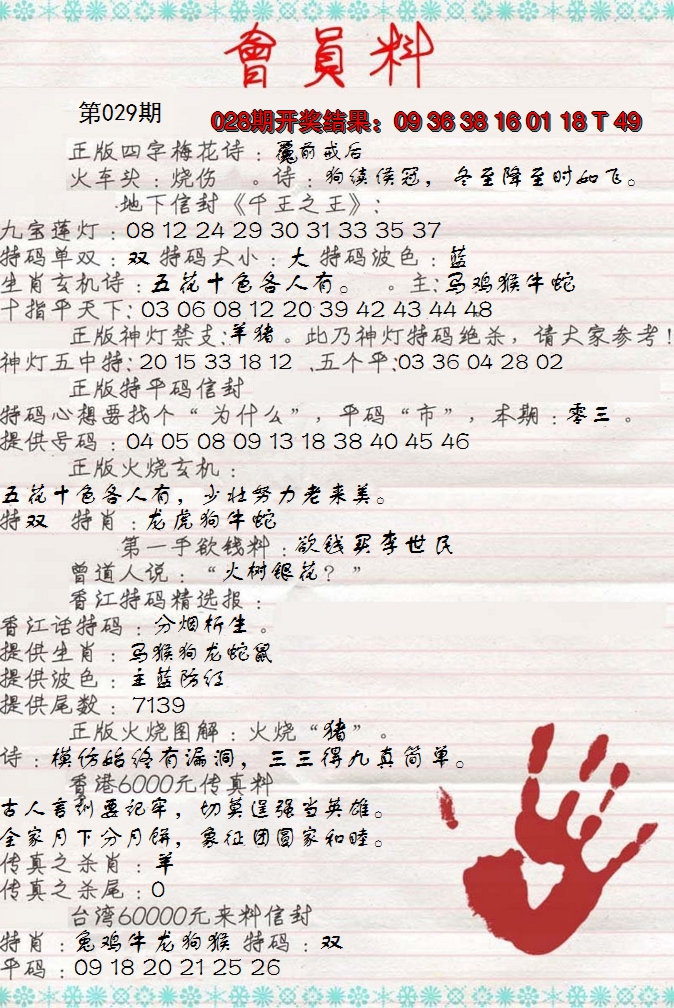 會員料
第029期
028期开奖结果：09 36 38 16 01 18 T 49
正版四字梅花诗：魔前戒后
火车头：烧伤 。诗：狗续侯冠，冬至降至时如飞。
地下信封《千王之王》：
九宝莲灯：08 12 24 29 30 31 33 35 37
特码单双：双 特码大小：大 特码波色：蓝
生肖玄机诗：五花十色各人有。 。主:马鸡猴牛蛇
十指平天下: 03 06 08 12 20 39 42 43 44 48
正版神灯禁支:羊猪。此乃神灯特码绝杀，请大家参考!
神灯五中特: 20 15 33 18 12 .五个平:03 36 04 28 02
正版特平码信封
特码心想要找个“为什么”，平码“市”，本期：零三 。
提供号码：04 05 08 09 13 18 38 40 45 46
正版火烧玄机：
五花十色各人有，少壮努力老来美。
特双 特肖：龙虎狗牛蛇
第一手欲钱料：欲钱买李世民
曾道人说：“火树银花？”
香江特码精选报：
香江话特码：分烟析生 。
提供生肖：马猴狗龙蛇鼠
提供波色：主蓝防红
提供尾数：7139
正版火烧图解：火烧“猪”。
诗：模仿始终有漏洞，三三得九真简单。
香港6000元传真料
古人言训要记牢，切莫逞强当英雄。
全家月下分月饼，象征团圆家和睦。
传真之杀肖：羊
传真之杀尾：0
台湾60000元来料信封
特肖：兔鸡牛龙狗猴 特码：双
平码：09 18 20 21 25 26